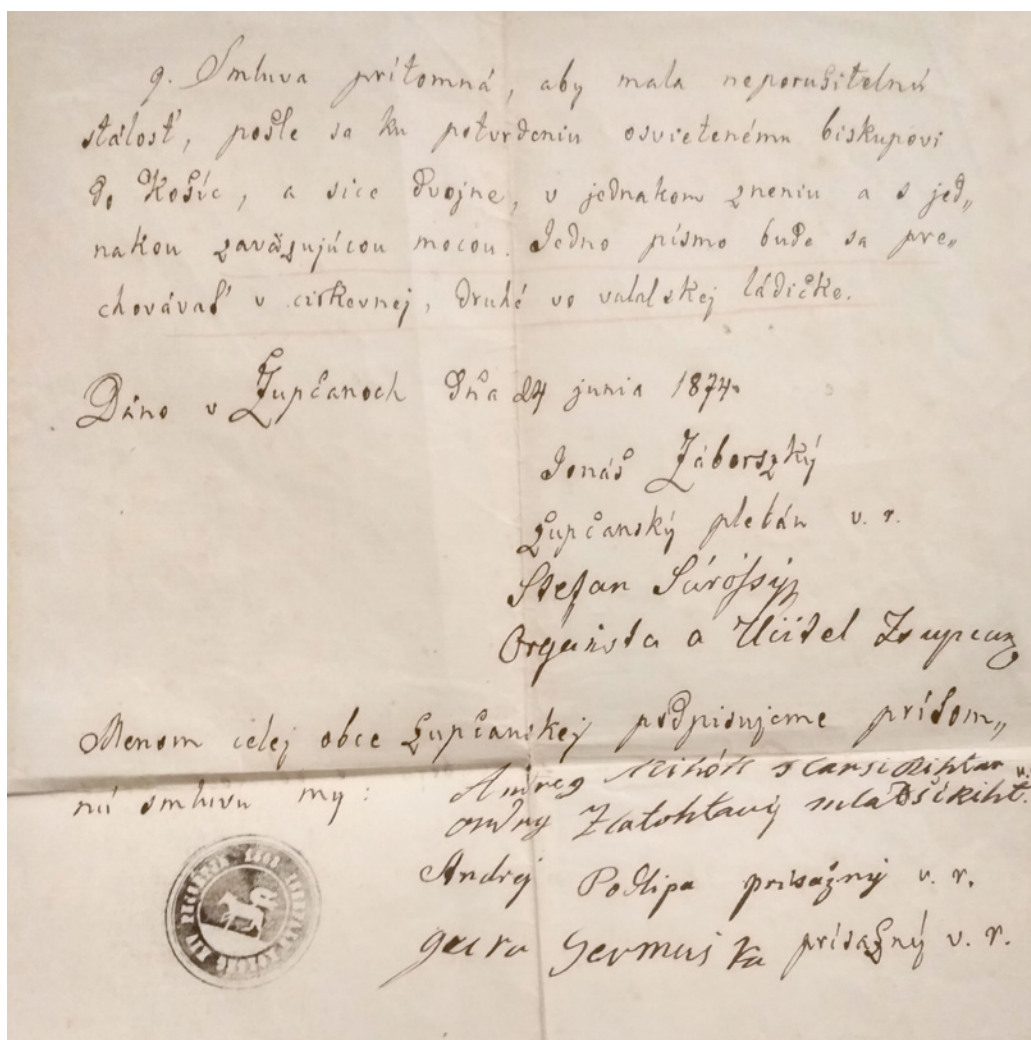 9. Smluva prítomná, aby mala neporušitelnú
stálosť, pošle sa ku potvrdeniu osvietenému biskupovi
do Košíc, a sice dvojne, v jednakom zneniu a s jed„
nakou zaväzujúcou mocou. Jedno písmo buďe sa pre„
chovávať v cirkevnej, druhé vo valalskej ládičke.
Dáno v Župčanoch dňa 24 junia 1874.
Jonáš Záborszký
župčanský plebán v. r.
Stefan Sárossy
Organista a Učitel Zsupcan
Menom celej obce župčanskej podpisujeme prítom„
nú smluvu my:
Andreg Mihók starsi Rihtar v.
Ondrey Zlatohlavý mladší riht.
Andrej Podlipa prisažný v. r.
Germuska prísažný v. r.